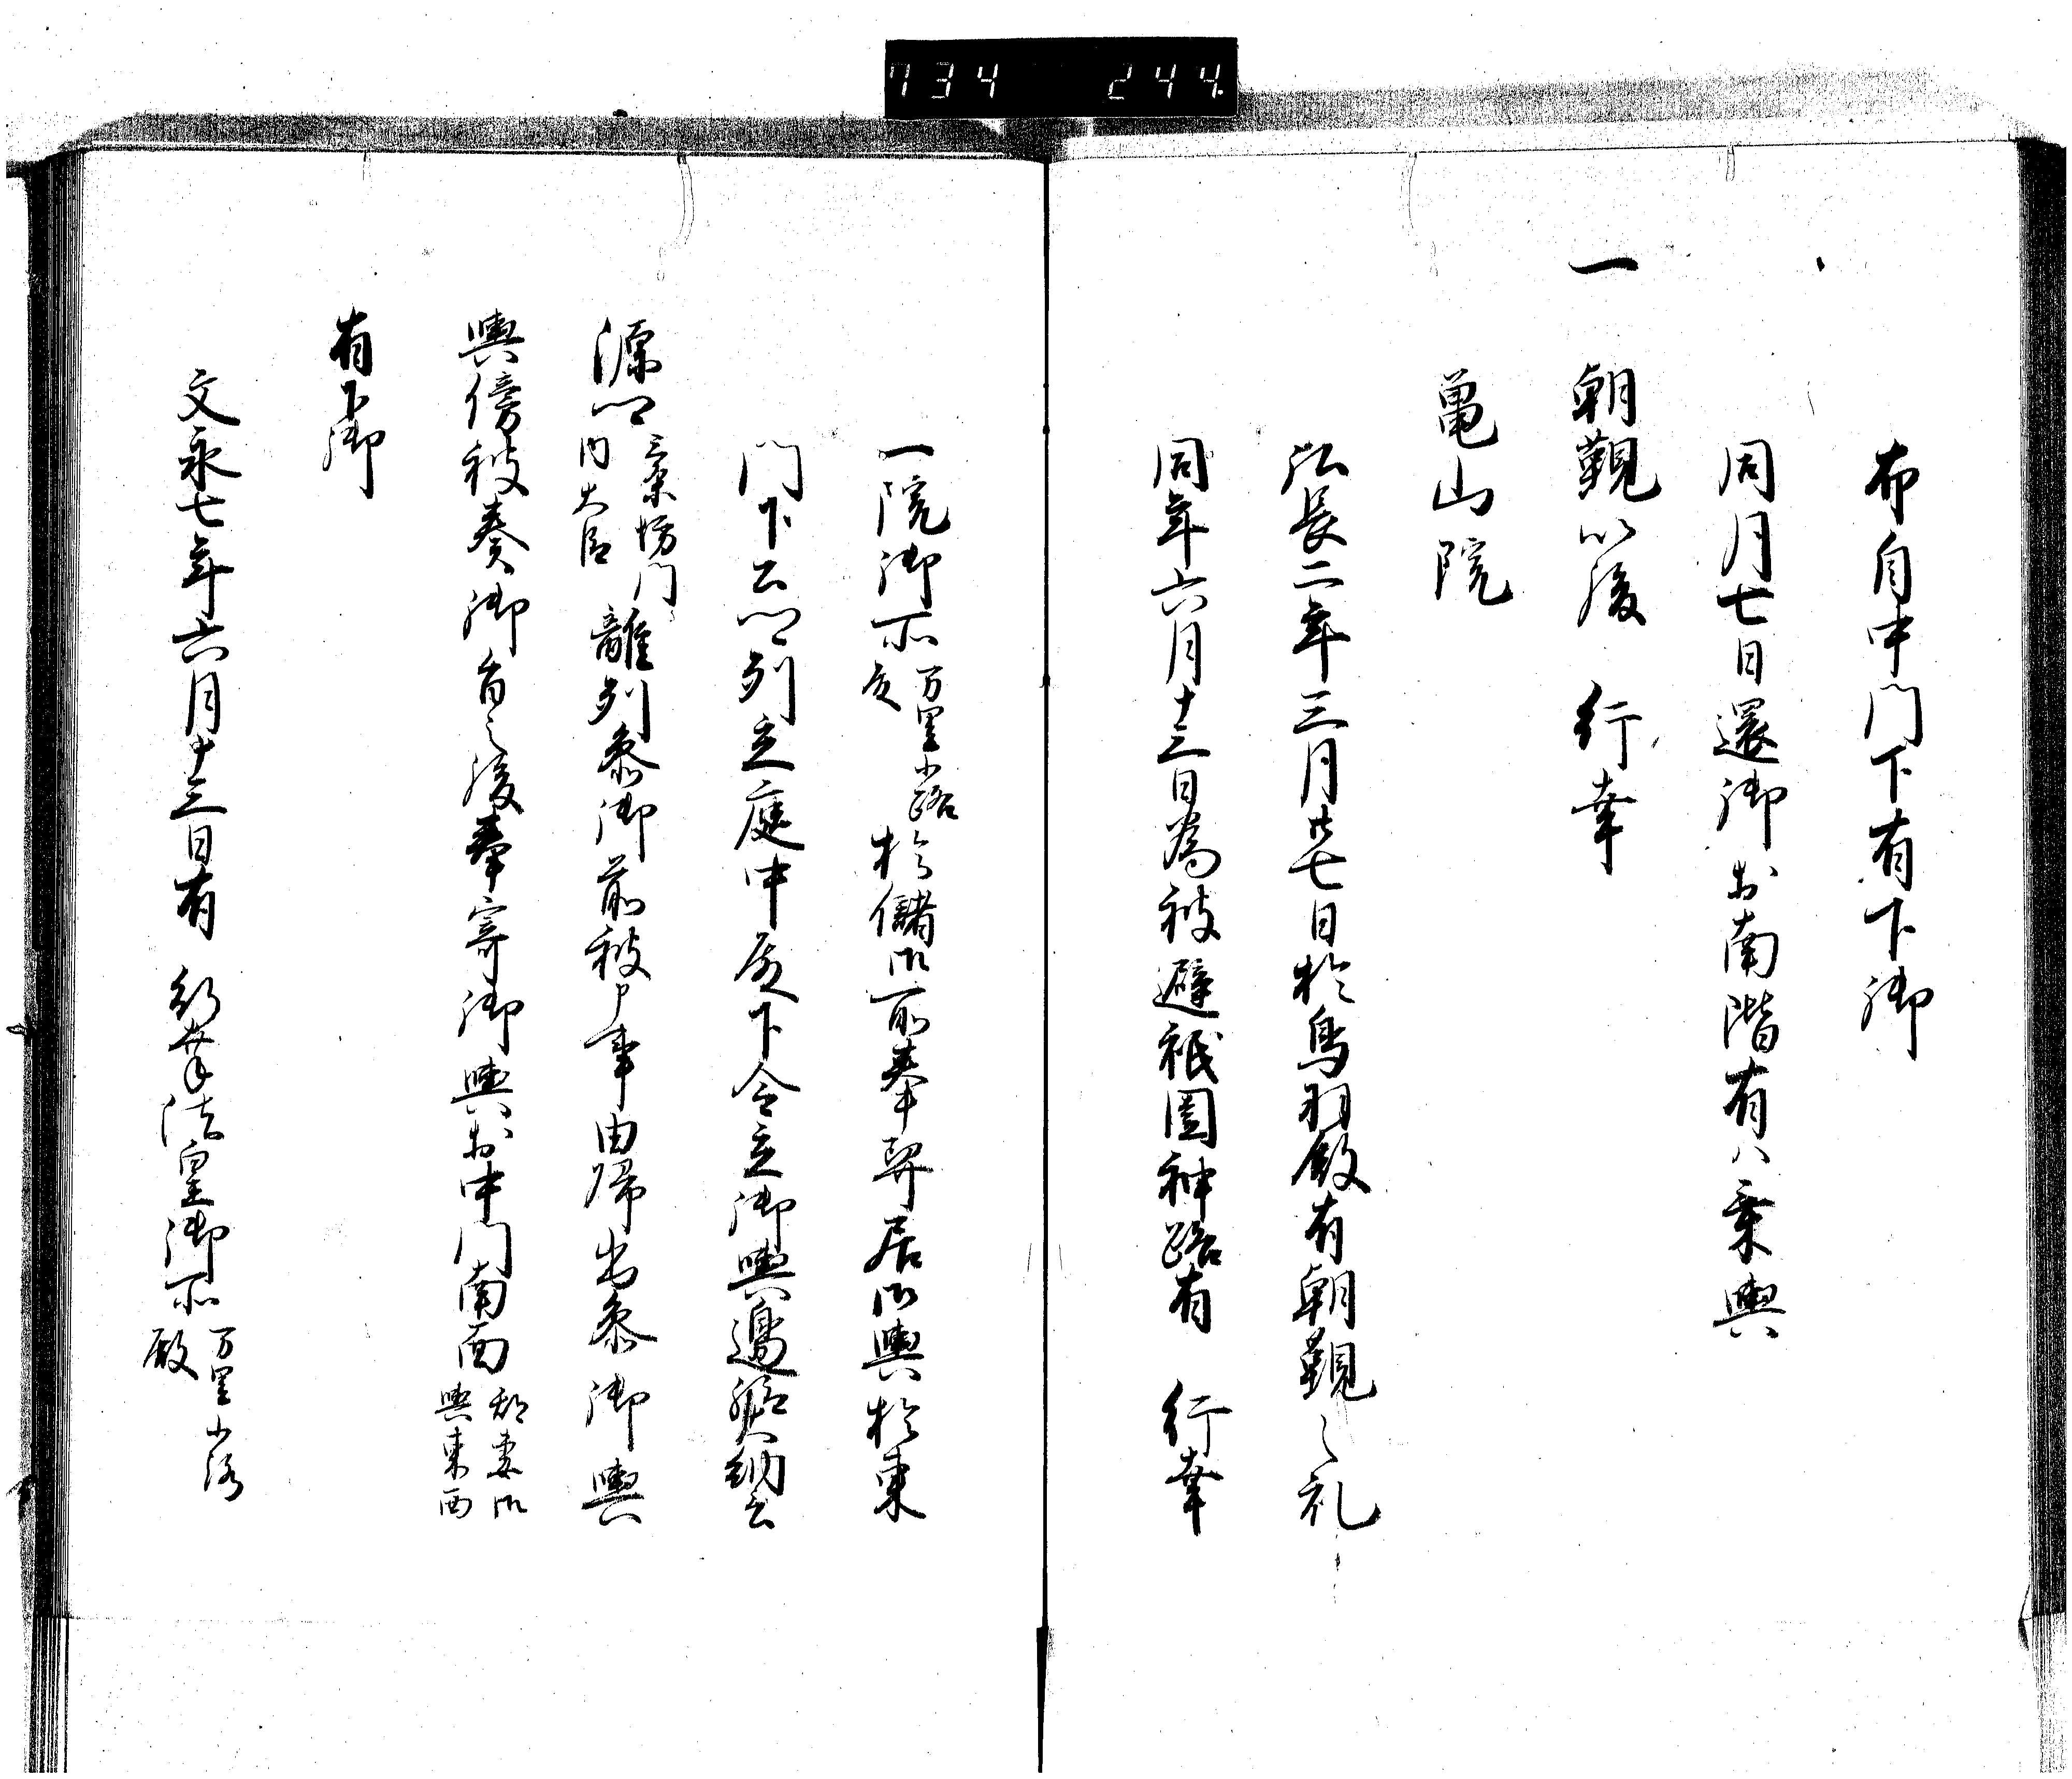 734 244
布自中門下有下御
同月七日還御於南階有八乗輿
一 朝覲以後 行幸
亀山院
弘長二年三月廿七日於鳥羽殿有朝覲之礼
同年六月十三日為被避祇園神路有 行幸
一院御所万里小路殿於儲御前奉舁居御輿於東
門下公卿列立庭中殿下令立御輿邊給大納言
源卿三条坊門内大臣離列参御前被申事由帰出参御輿
輿傍被奏御旨之後奉寄御輿於中門南面劔妻御輿東西
有下御
文永七年六月十三日有 行幸法皇御所万里小路殿